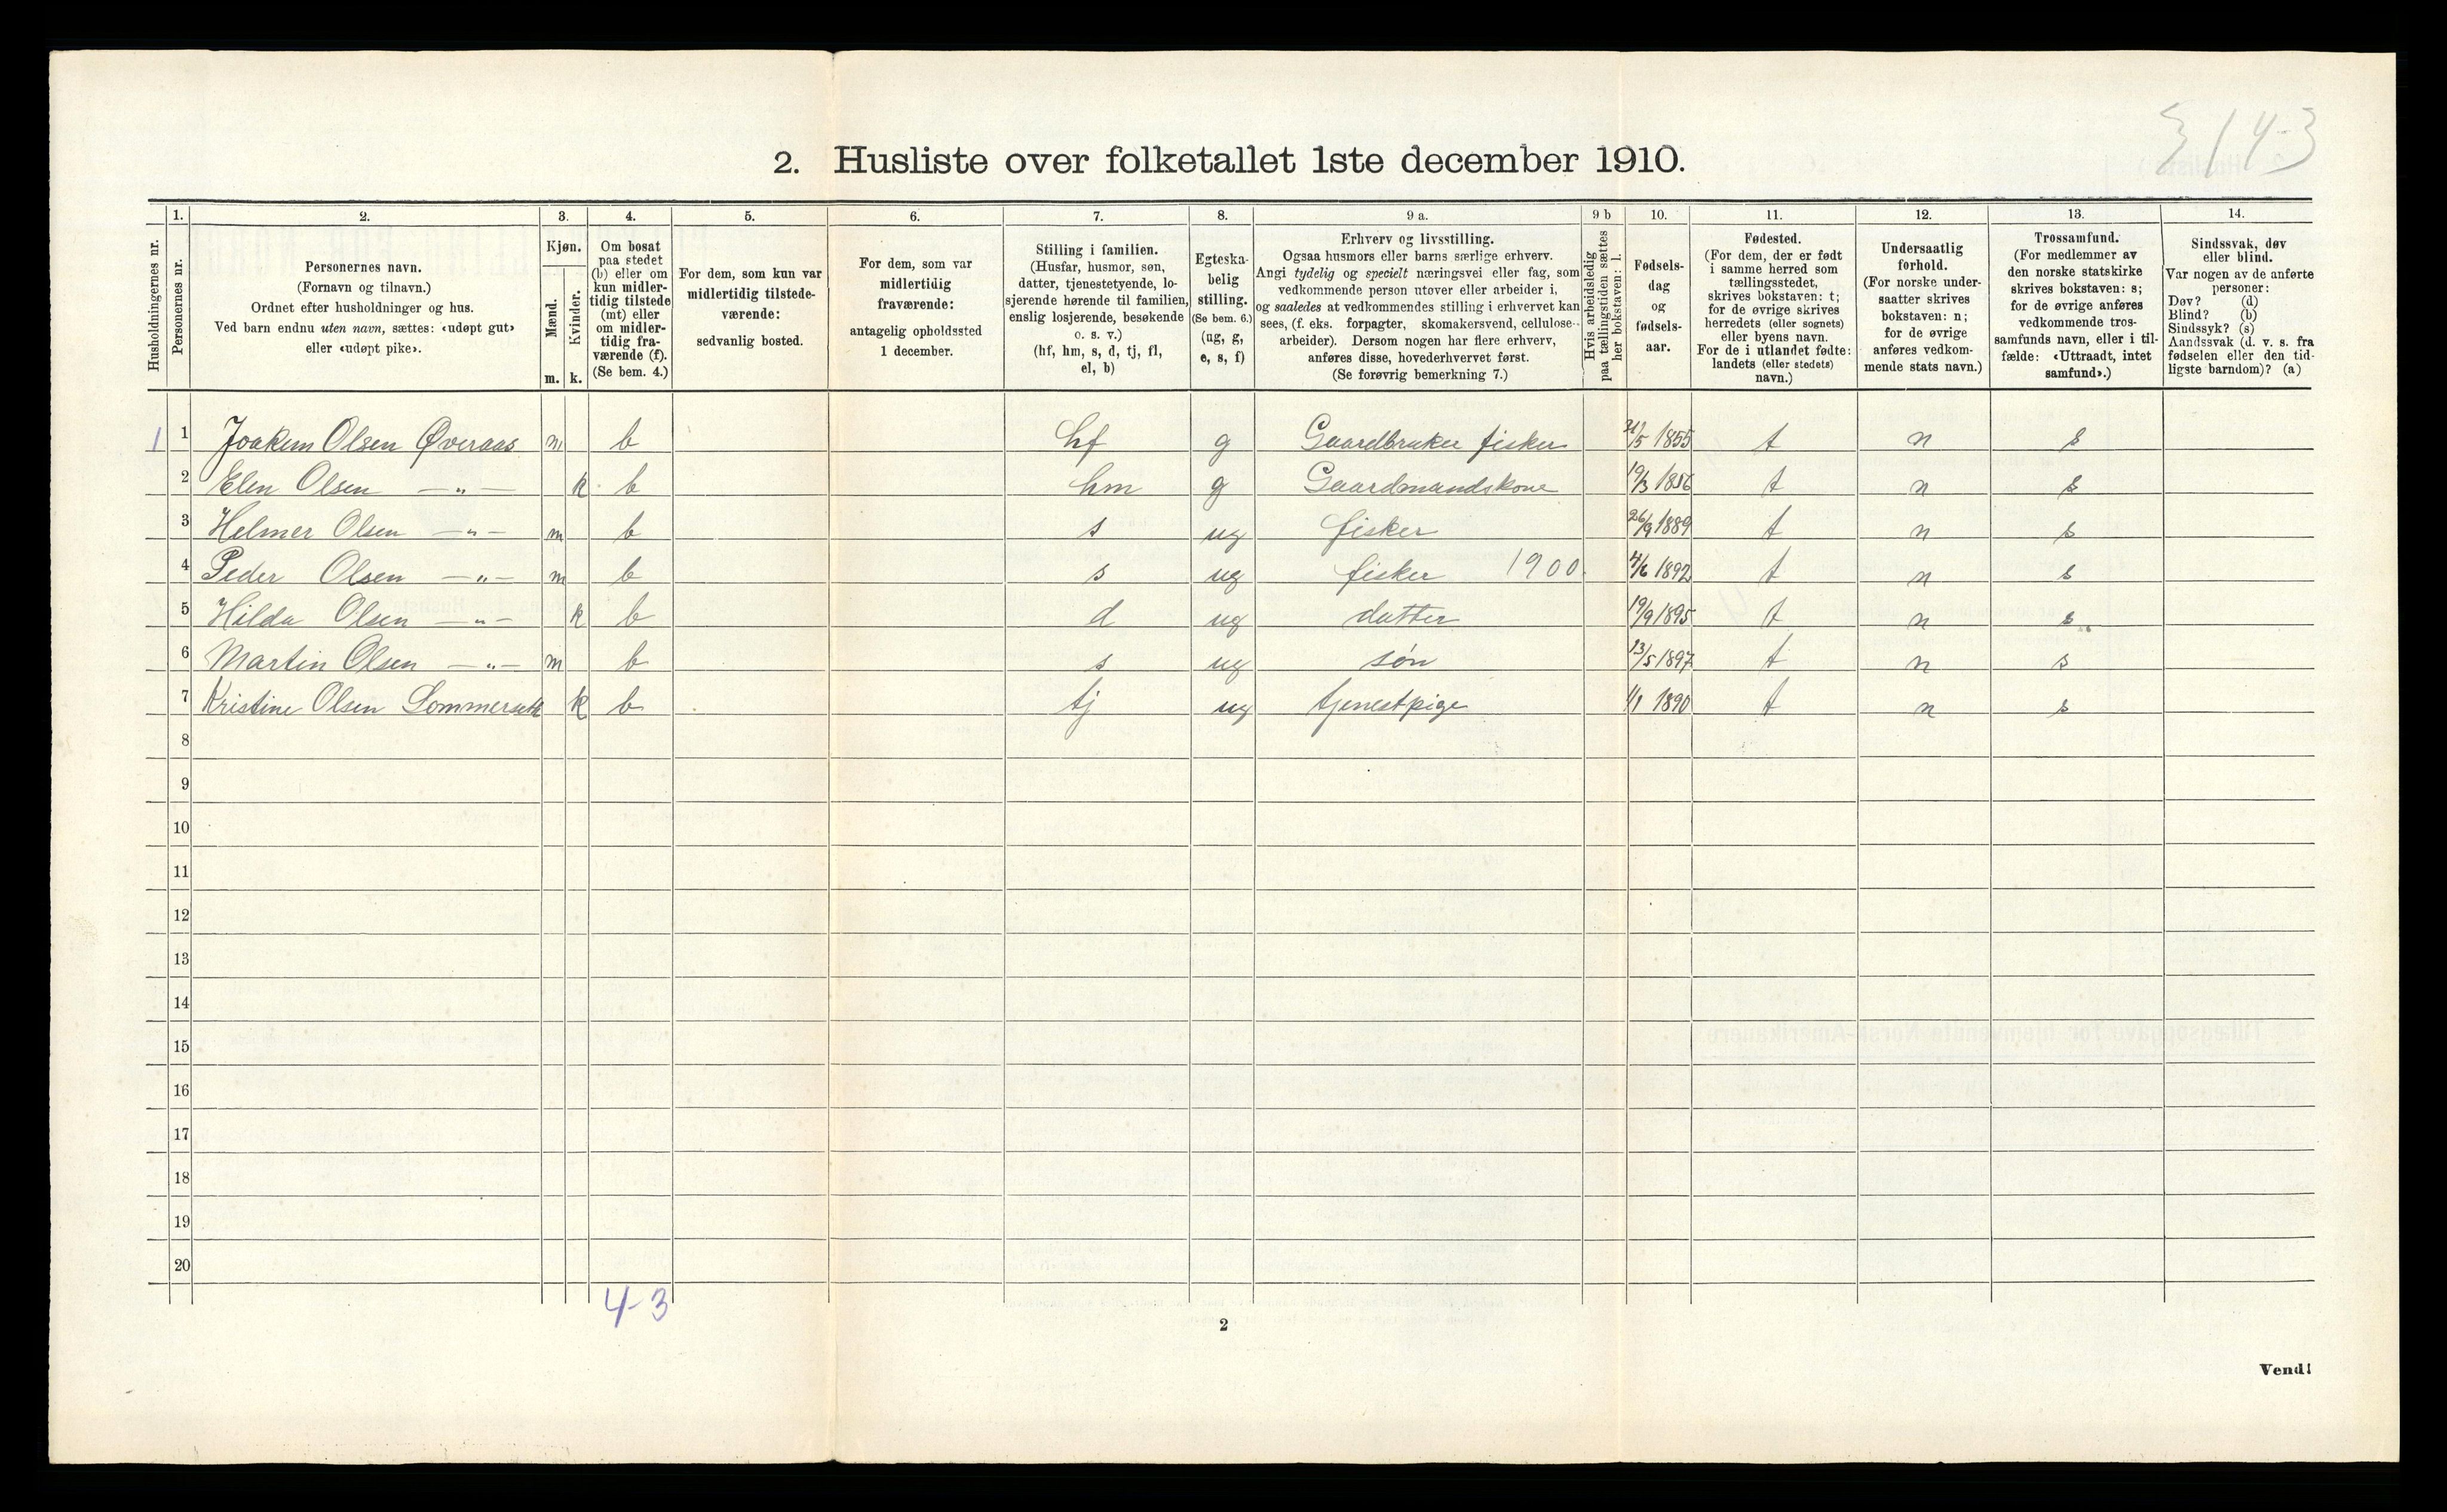 14-3
2. Husliste over folketallet 1ste december 1910.
Husholdningernes nr.
1.
Personernes nr.
2.
Personernes navn.
(Fornavn og tilnavn.)
Ordnet efter husholdninger og hus.
Ved barn endnu uten navn, sættes: «udøpt gut»
eller «udøpt pike».
3.
Kjøn.
Mænd.
Kvinder.
m. k.
4.
Om bosat
paa stedet
(b) eller om
kun midler-
tidig tilstede
(mt) eller
om midler-
tidig fra-
værende (f).
(Se bem. 4.)
5.
For dem, som kun var
midlertidig tilstede-
værende:
sedvanlig bosted.
6.
For dem, som var
midlertidig
fraværende:
antagelig opholdssted
1 december.
7.
Stilling i familien.
(Husfar, husmor, søn,
datter, tjenestetyende, lo-
sjerende hørende til familien,
enslig losjerende, besøkende
o. s. v.)
(hf, hm, s, d, tj, fl,
el, b)
8.
Egteska-
belig
stilling.
(Se bem. 6.)
(ug, g,
e, s, f)
9 a.
Erhverv og livsstilling.
Ogsaa husmors eller barns særlige erhverv.
Angi tydelig og specielt næringsvei eller fag, som
vedkommende person utøver eller arbeider i,
og saaledes at vedkommendes stilling i erhvervet kan
sees, (f. eks. forpagter, skomakersvend, cellulose-
arbeider). Dersom nogen har flere erhverv,
anføres disse, hovederhvervet først.
(Se forøvrig bemerkning 7.)
9 b
Hvis arbeidsledig
paa tællingstiden sættes
her bokstaven: l.
10.
Fødsels-
dag
og
fødsels-
aar.
11.
Fødested.
(For dem, der er født
i samme herred som
tællingsstedet,
skrives bokstaven: t;
for de øvrige skrives
herredets (eller sognets)
eller byens navn.
For de i utlandet fødte:
landets (eller stedets)
navn.)
12.
Undersaatlig
forhold.
(For norske under-
saatter skrives
bokstaven: n;
for de øvrige
anføres vedkom-
mende stats navn.)
13.
Trossamfund.
(For medlemmer av
den norske statskirke
skrives bokstaven: s;
for de øvrige anføres
vedkommende tros-
samfunds navn, eller i til-
fælde: «Uttraadt, intet
samfund».)
14.
Sindssvak, døv
eller blind.
Var nogen av de anførte
personer:
Døv? (d)
Blind? (b)
Sindssyk? (s)
Aandssvak (d. v. s. fra
fødselen eller den tid-
ligste barndom)? (a)
1 1 Joakim Olsen Øveraas m b hf g Gaardbruker fisker 1855 t n s
2 Elen Olsen —„— k b hm g Gaardmandskone 19/3 1856 t n s
3 Helmer Olsen —„— m b s ug fisker 26/9 1889 t n s
4 Peder Olsen —„— m b s ug fisker 1900 4/6 1892 t n s
5 Hilda Olsen —„— k b d ug datter 19/9 1895 t n s
6 Martin Olsen —„— m b s ug søn 13/5 1897 t n s
7 Kristine Olsen k b tj ug tjenestpige 1/1 1890 t n s
8
9
10
11
12
13
14
15
16
17
18
19
20
4-3
2
Vend!